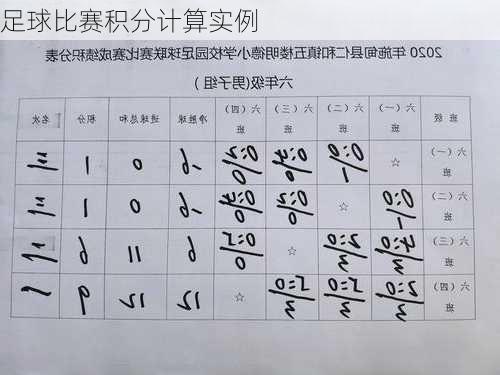 足球比赛积分计算实例
2020 年施甸县仁和镇五楼明德小学校园足球联赛比赛成绩积分表
六年级(男子组 )
班级 六（一）班 六（二）班 六（三）班 六（四）班 净胜球 进球总和 积分 名次
六（一）班 ☆ 0:0/1 0:7/0 0 1
六（二）班 0:0/1 ☆ 0:2/0 0 1
六（三）班 7:0/3 2:0/3 ☆ 11 6
六（四）班 5:0/3 2:0/3 ☆ 12 12 9 1